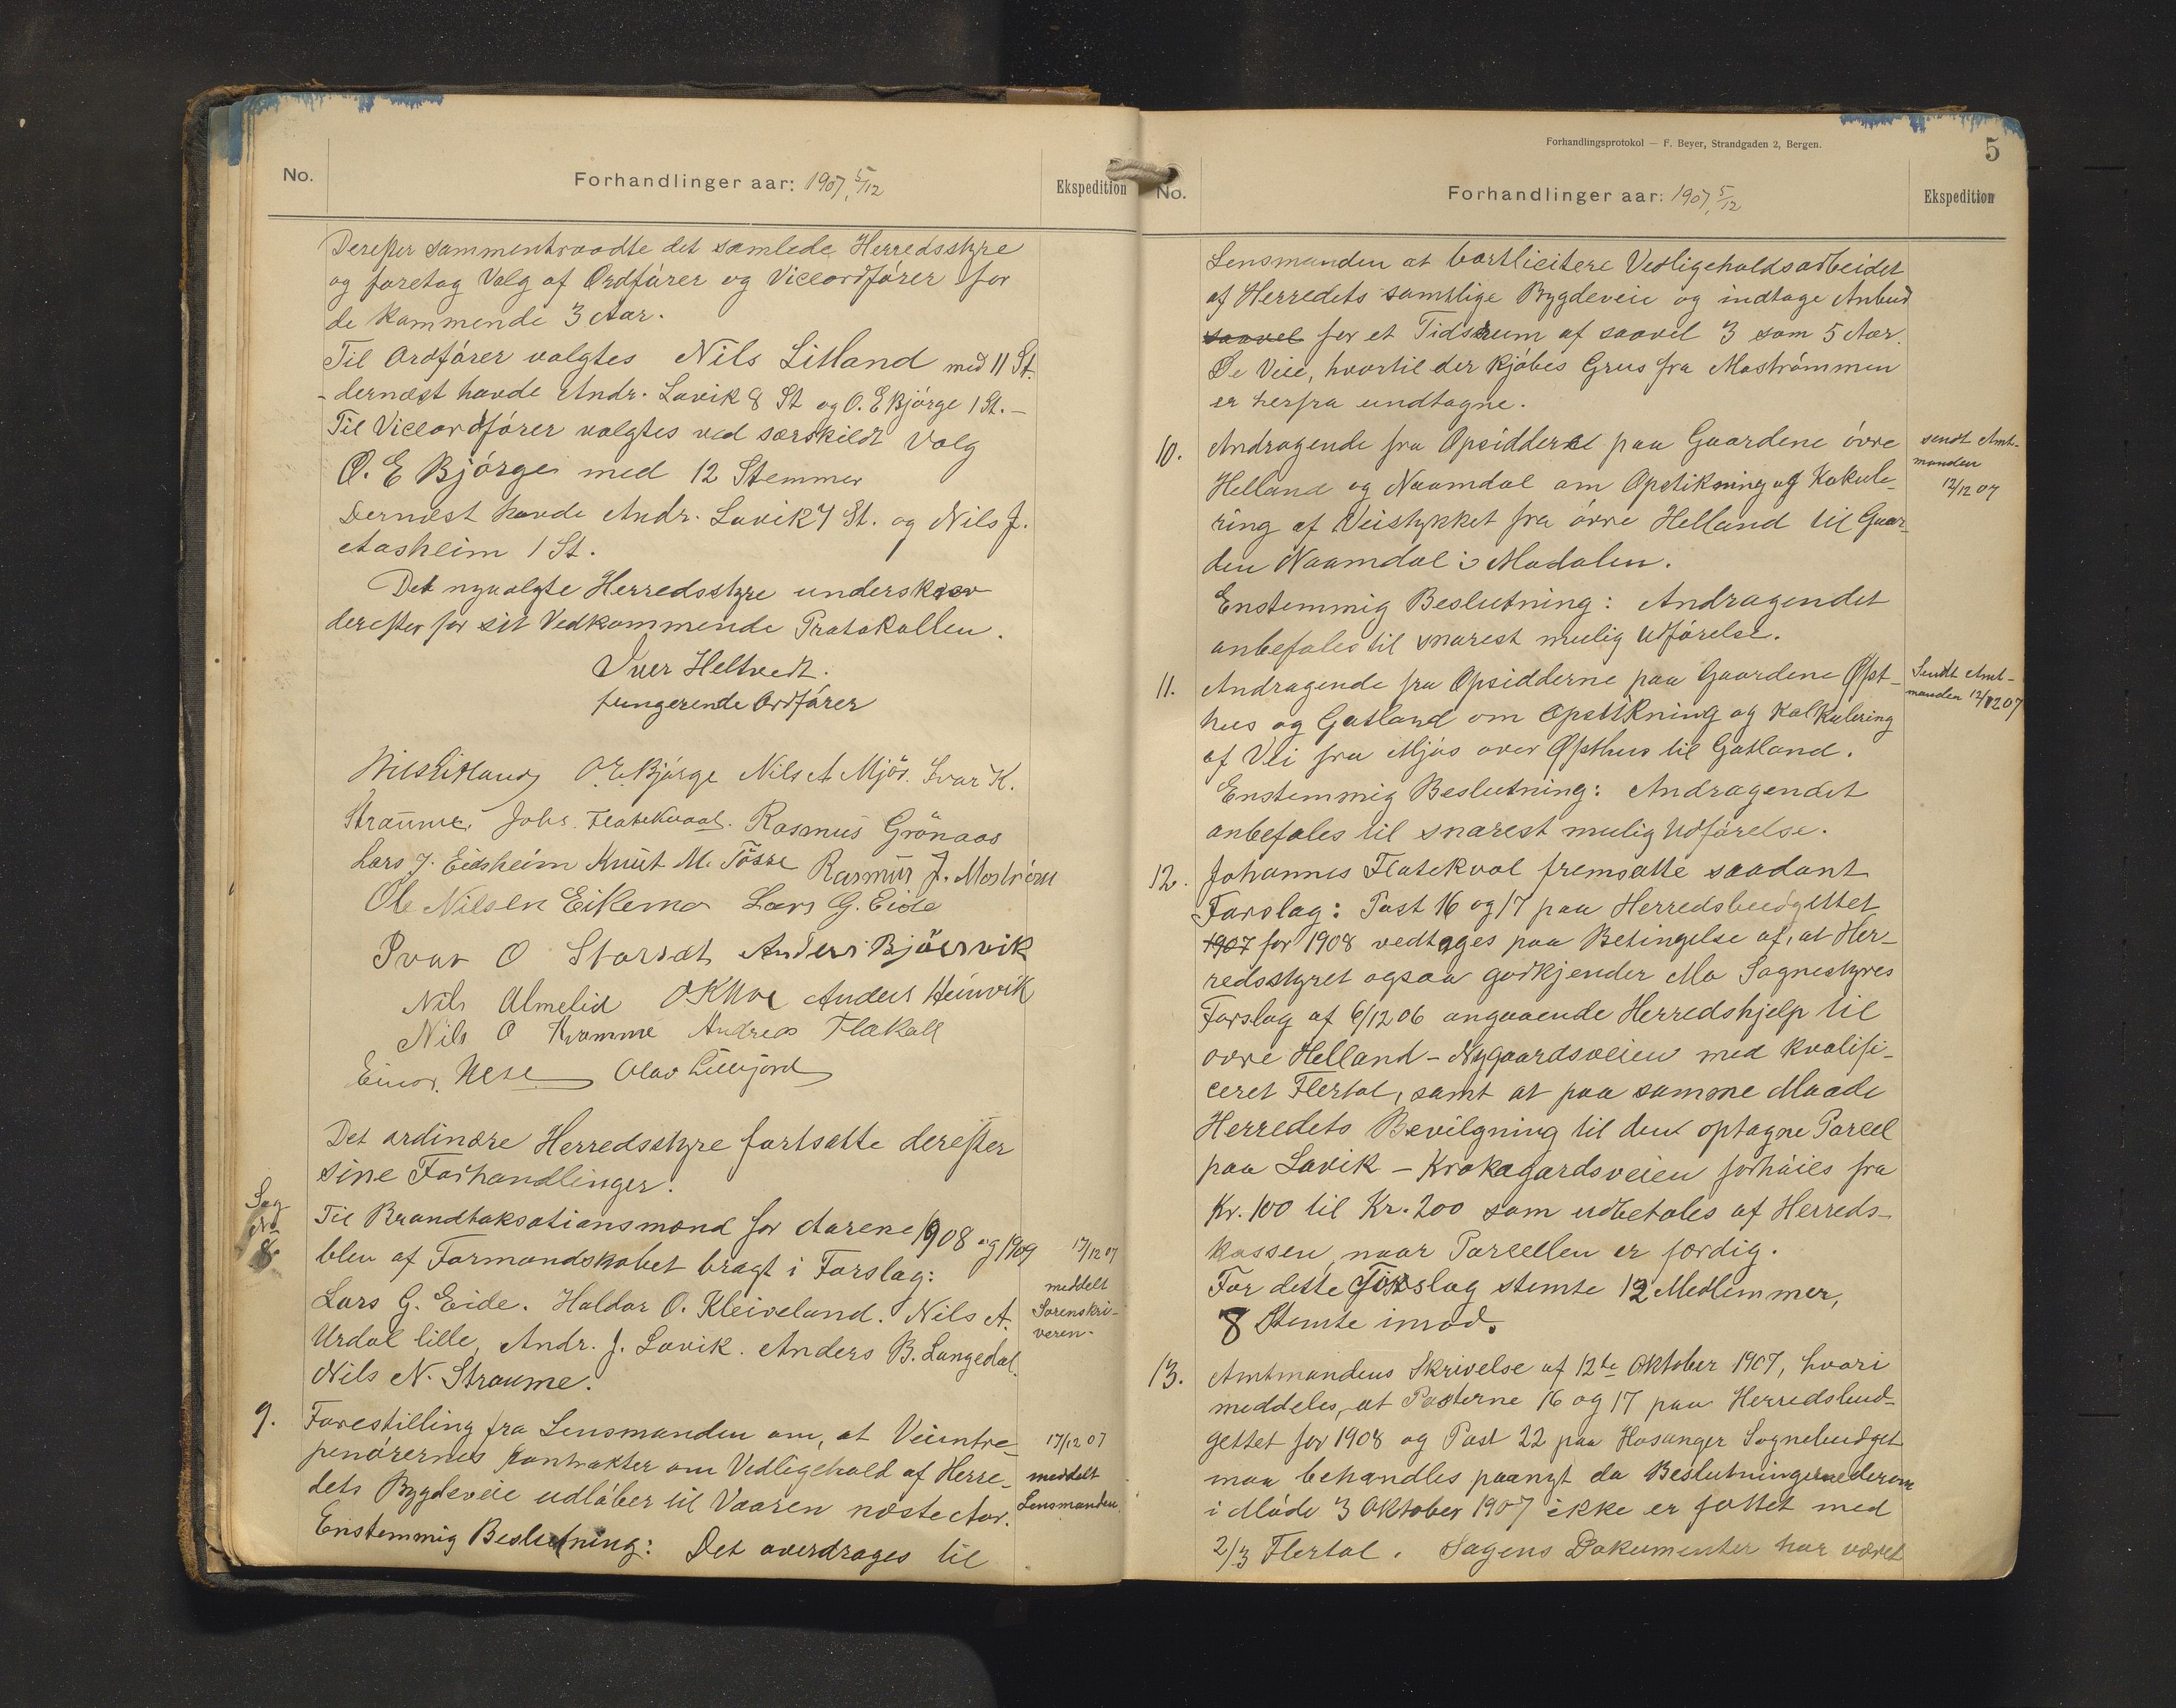 No.
Forhandlinger aar: 1907, 5/12
Ekspedition
Derefter sammentraadte det samlede Herredsstyre
og foretog Valg af Ordfører og Viceordfører for
de kommende 3 Aar.
Til Ordfører valgtes Nils Litland med 11 St.
- dernæst havde Andr. Lavik 8 St og O. E Bjørge 1 St. -
Til Viceordfører valgtes ved særskildt Valg
O. E Bjørge med 12 Stemmer
Dernæst havde Andr. Lavik 7 St. og Nils J.
Aasheim 1 St.
Det nyvalgte Herredsstyre underskrev
derefter for sit Vedkommende Protokollen.
Iver Heltvedt.
fungerende Ordfører
Nils Litland O. E. Bjørge Nils A Mjøs. Ivar K.
Straume. Johs. Flatekvaal. Rasmus Grønaas
Lars J. Eidsheim Knut M. Tösse Rasmus J. Moström
Ole Nilsen Eikemo Lars G. Eide
Ivar O Storset Anders Bjørsvik
Nils Almelid O K Anders Heinvik
Nils O Kvamme Andreas Flakall
Einar Nese Olav Lillejord
Det ordinære Herredsstyre fortsatte derefter
sine Forhandlinger.
Sag
No
8.
Til Brandtaksationsmænd for Aarene 1908 og 1909
blev af Formandskabet bragt i Forslag:
Lars G. Eide. Haldor O. Kleiveland. Nils A.
Urdal lille, Andr. J. Lavik. Anders B. Langedal.
Nils N. Straume.
17/12 07
meddelt
Sorenskri-
veren.
9.
Forestilling fra Lensmanden om, at Veientre-
penørernes Kontrakter om Vedligehold af Herre-
dets Bygdeveie udløber til Vaaren næste Aar.
Enstemmig Beslutning: Det overdrages til
17/12 07
meddelt
Lensmanden
Forhandlingsprotokol — F. Beyer, Strandgaden 2, Bergen.
5
No.
Forhandlinger aar: 1907, 5/12
Ekspedition
Lensmanden at bortlicitere Vedligeholdsarbeidet
af Herredets samtlige Bygdeveie og indtage Anbud
saavel for et Tidsrum af saavel 3 som 5 Aar.
De Veie, hvortil der kjøbes Grus fra Mostrømmen
er herfra undtagne.
10.
Andragende fra Opsidderne paa Gaardene øvre
Helland og Naamdal om Opstikning og Kakule-
ring af Veistykket fra øvre Helland til Gaar-
den Naamdal i Modalen.
Enstemmig Beslutning: Andragendet
anbefales til snarest mulig Udførelse.
sendt Amt-
manden
12/12 07
11.
Andragende fra Opsidderne paa Gaardene Øpst-
hus og Gatland om Opstikning og Kalkulering
af Vei fra Mjøs over Øpsthus til Gatland.
Enstemmig Beslutning: Andragendet
anbefales til snarest mulig Udførelse.
Sendt Amt-
manden 12/12 07
12.
Johannes Flatekval fremsatte saadant
Forslag: Post 16 og 17 paa Herredsbudgettet
1907 for 1908 vedtages paa Betingelse af, at Her-
redsstyret ogsaa godkjender Mo Sognestyres
Forslag af 6/12 06 angaaende Herredshjelp til
øvre Helland - Nygaardsveien med kvalifi-
ceret Flertal, samt at paa samme Maade
Herredets Bevilgning til den optagne Parcel
paa Lavik - Krokagardsveien forhøies fra
Kr. 100 til Kr. 200 som udbetales af Herreds-
kassen, naar Parcellen er færdig.
For dette Forslag stemte 12 Medlemmer,
8 Stemte imod.
13.
Amtmandens Skrivelse af 12te Oktober 1907, hvori
meddeles, at Posterne 16 og 17 paa Herredsbud-
gettet for 1908 og Post 22 paa Hosanger Sognebudget
maa behandles paanyt da Beslutningerne derom
i Møde 3 Oktober 1907 ikke er fattet med
2/3 Flertal. Sagens Dokumenter har været